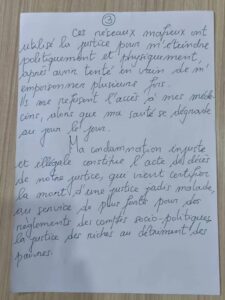 3
Ces réseaux mafieux ont
utilisé la justice pour m'éteindre
politiquement et physiquement,
après avoir tenté en vain de m'
emprisonner plusieurs fois.
Ils me refusent l'accès à mes méde-
cins, alors que ma santé se dégrade
au jour le jour.
Ma condamnation injuste
et illégale constitue l'acte de décès
de notre justice, qui vient certifier
la mort d'une justice jadis malade,
au service de plus forts pour des
règlements des comptes socio-politiques,
la justice des riches au détriment des
pauvres.